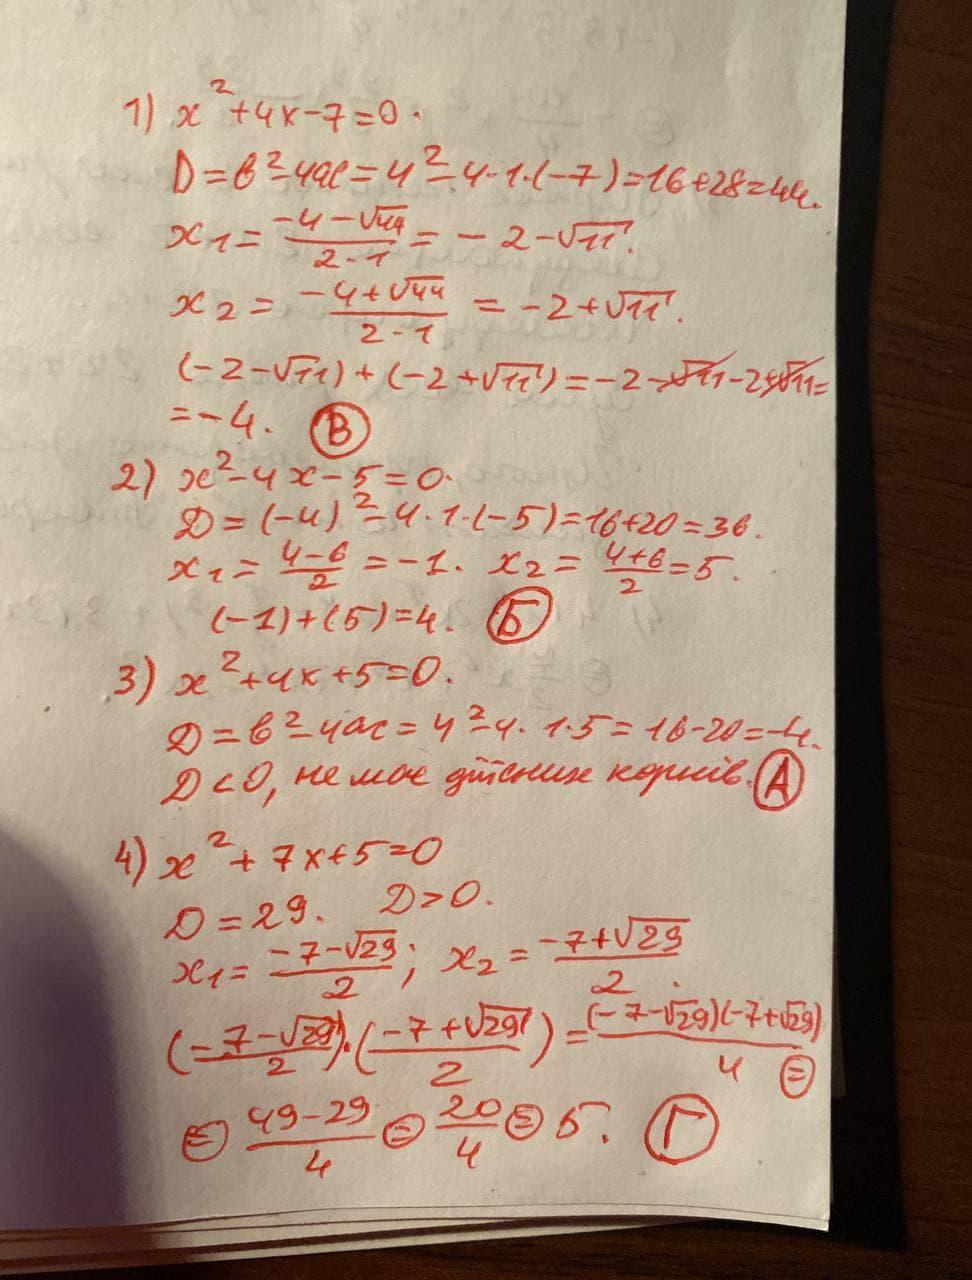 1) x²+4x-7=0.
D=b²-4ac=4²-4·1·(-7)=16+28=44.
x₁=(-4-√44)/(2·1)=-2-√11.
x₂=(-4+√44)/(2·1)=-2+√11.
(-2-√11)+(-2+√11)=-2-√11-2+√11=
=-4. В
2) x²-4x-5=0.
D=(-4)²-4·1·(-5)=16+20=36.
x₁=(4-6)/2=-1. x₂=(4+6)/2=5.
(-1)+(5)=4. Б
3) x²+4x+5=0.
D=b²-4ac=4²-4·1·5=16-20=-4.
D<0, не має дійсних коренів. А
4) x²+7x+5=0
D=29. D>0.
x₁=(-7-√29)/2; x₂=(-7+√29)/2.
((-7-√29)/2)·((-7+√29)/2)=((-7-√29)(-7+√29))/4=
=(49-29)/4=20/4=5. Г